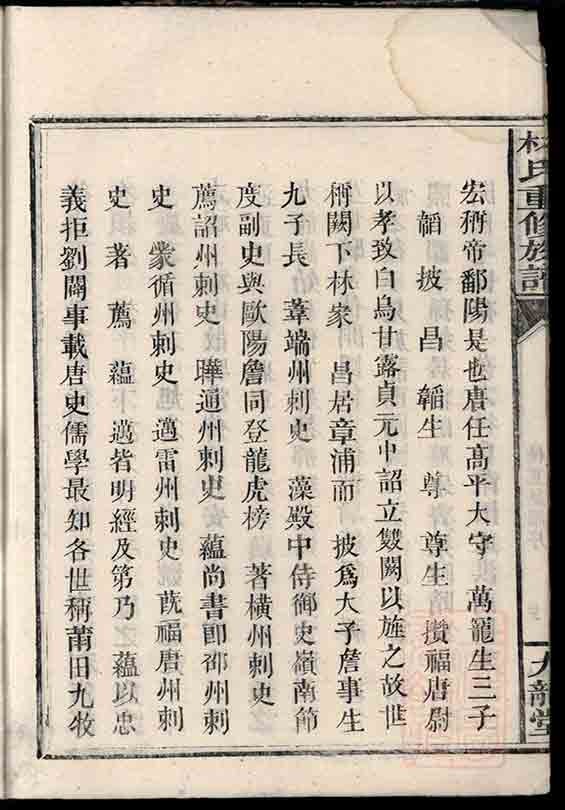 林氏重修族譜
宏稱帝鄱陽是也唐任髙平大守 萬寵生三子
韜 披 昌 韜生 尊 尊生 攢福唐尉
以孝致白烏甘露貞元中詔立雙闕以旌之故世
稱闕下林家 昌居章浦而 披爲大子詹事生
九子長 葦端州刺史 藻殿中侍御史嶺南節
度副史與歐陽詹同登龍虎榜 著横州刺史
薦詔州刺史 曄通州刺史 蘊尚書郎邵州刺
史 蒙循州刺史 邁雷州刺史 旣福唐州刺
史 著 薦 蘊 邁皆明經及第乃 蘊以忠
義拒劉闢事載唐史儒學最知各世稱莆田九牧
九龍堂